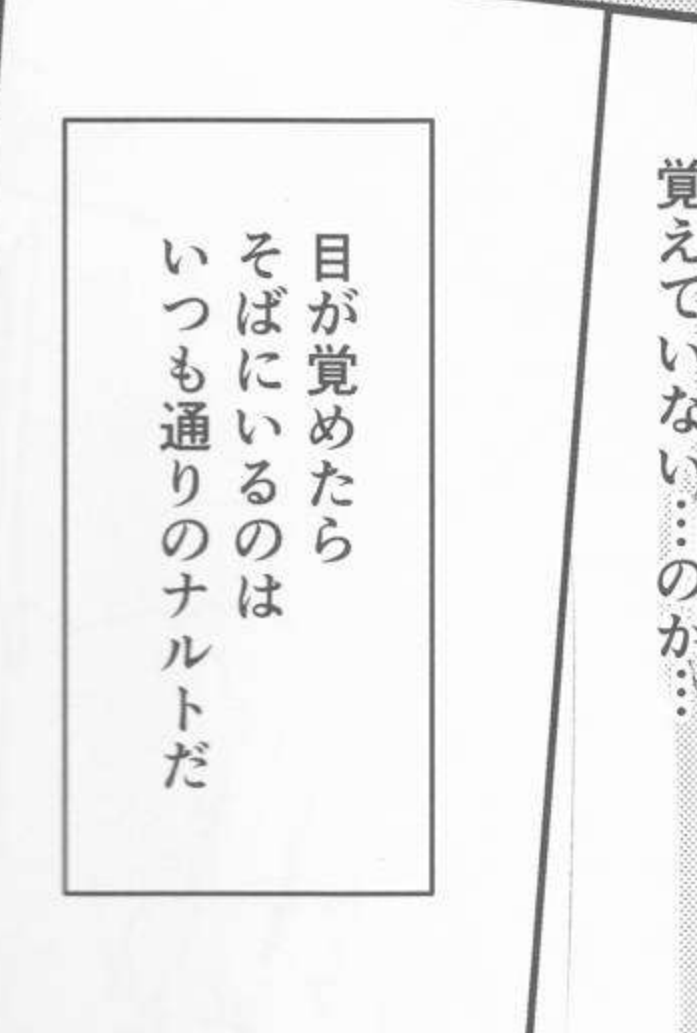 覚えていない…のか…
目が覚めたら
そばにいるのは
いつも通りのナルトだ